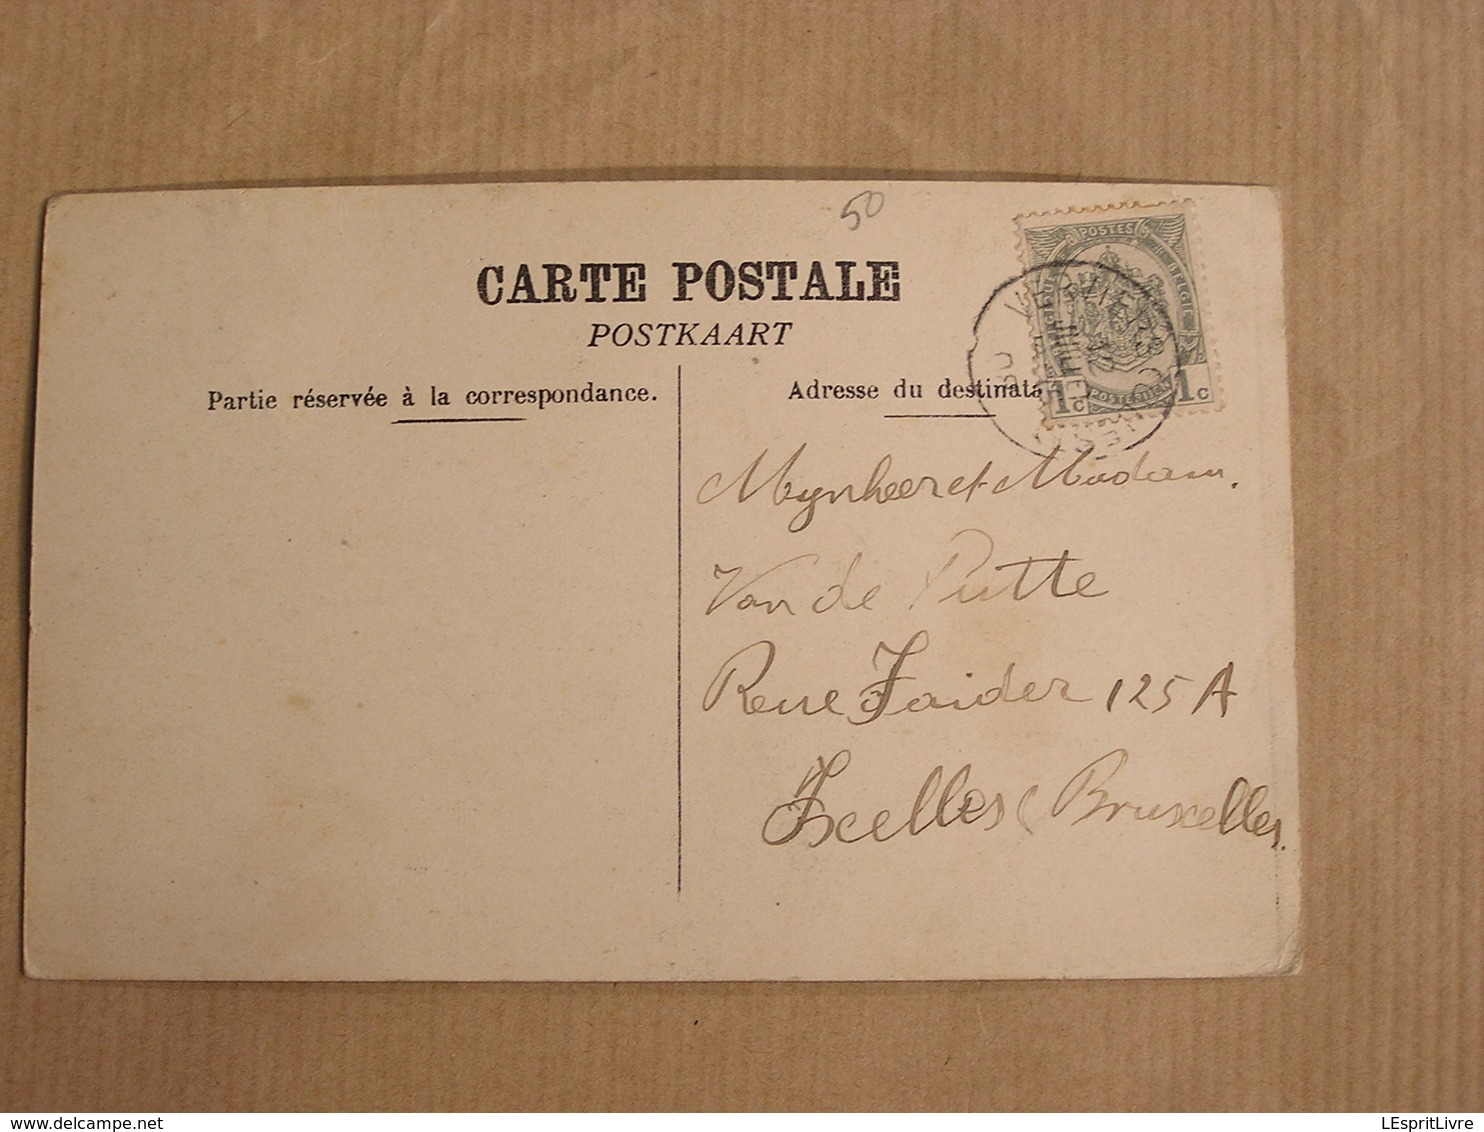 50
CARTE POSTALE
POSTKAART
Partie réservée à la correspondance.
Adresse du destinata
POSTES
BELGIE
1c POSTERIJEN 1c
Mynheer et Madam.
Van de Putte
Rue Faider 125 A
Ixelles (Bruxelles.
delcampe.net
LEspritLivre